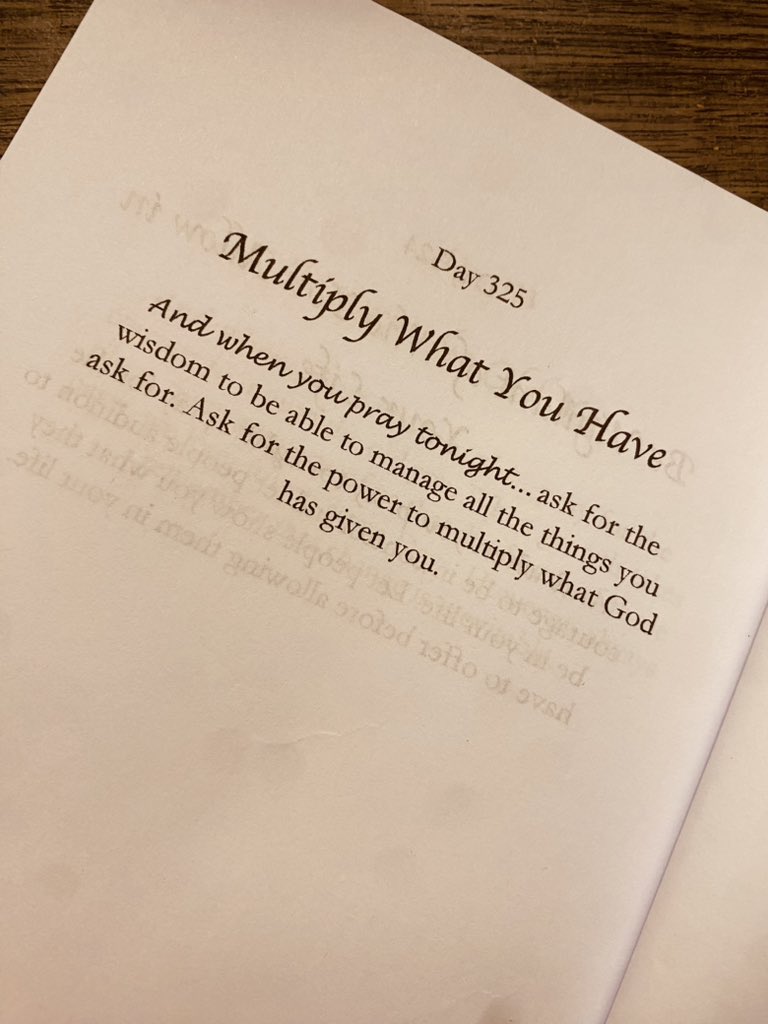 Day 325
Multiply What You Have
And when you pray tonight... ask for the
wisdom to be able to manage all the things you
ask for. Ask for the power to multiply what God
has given you.